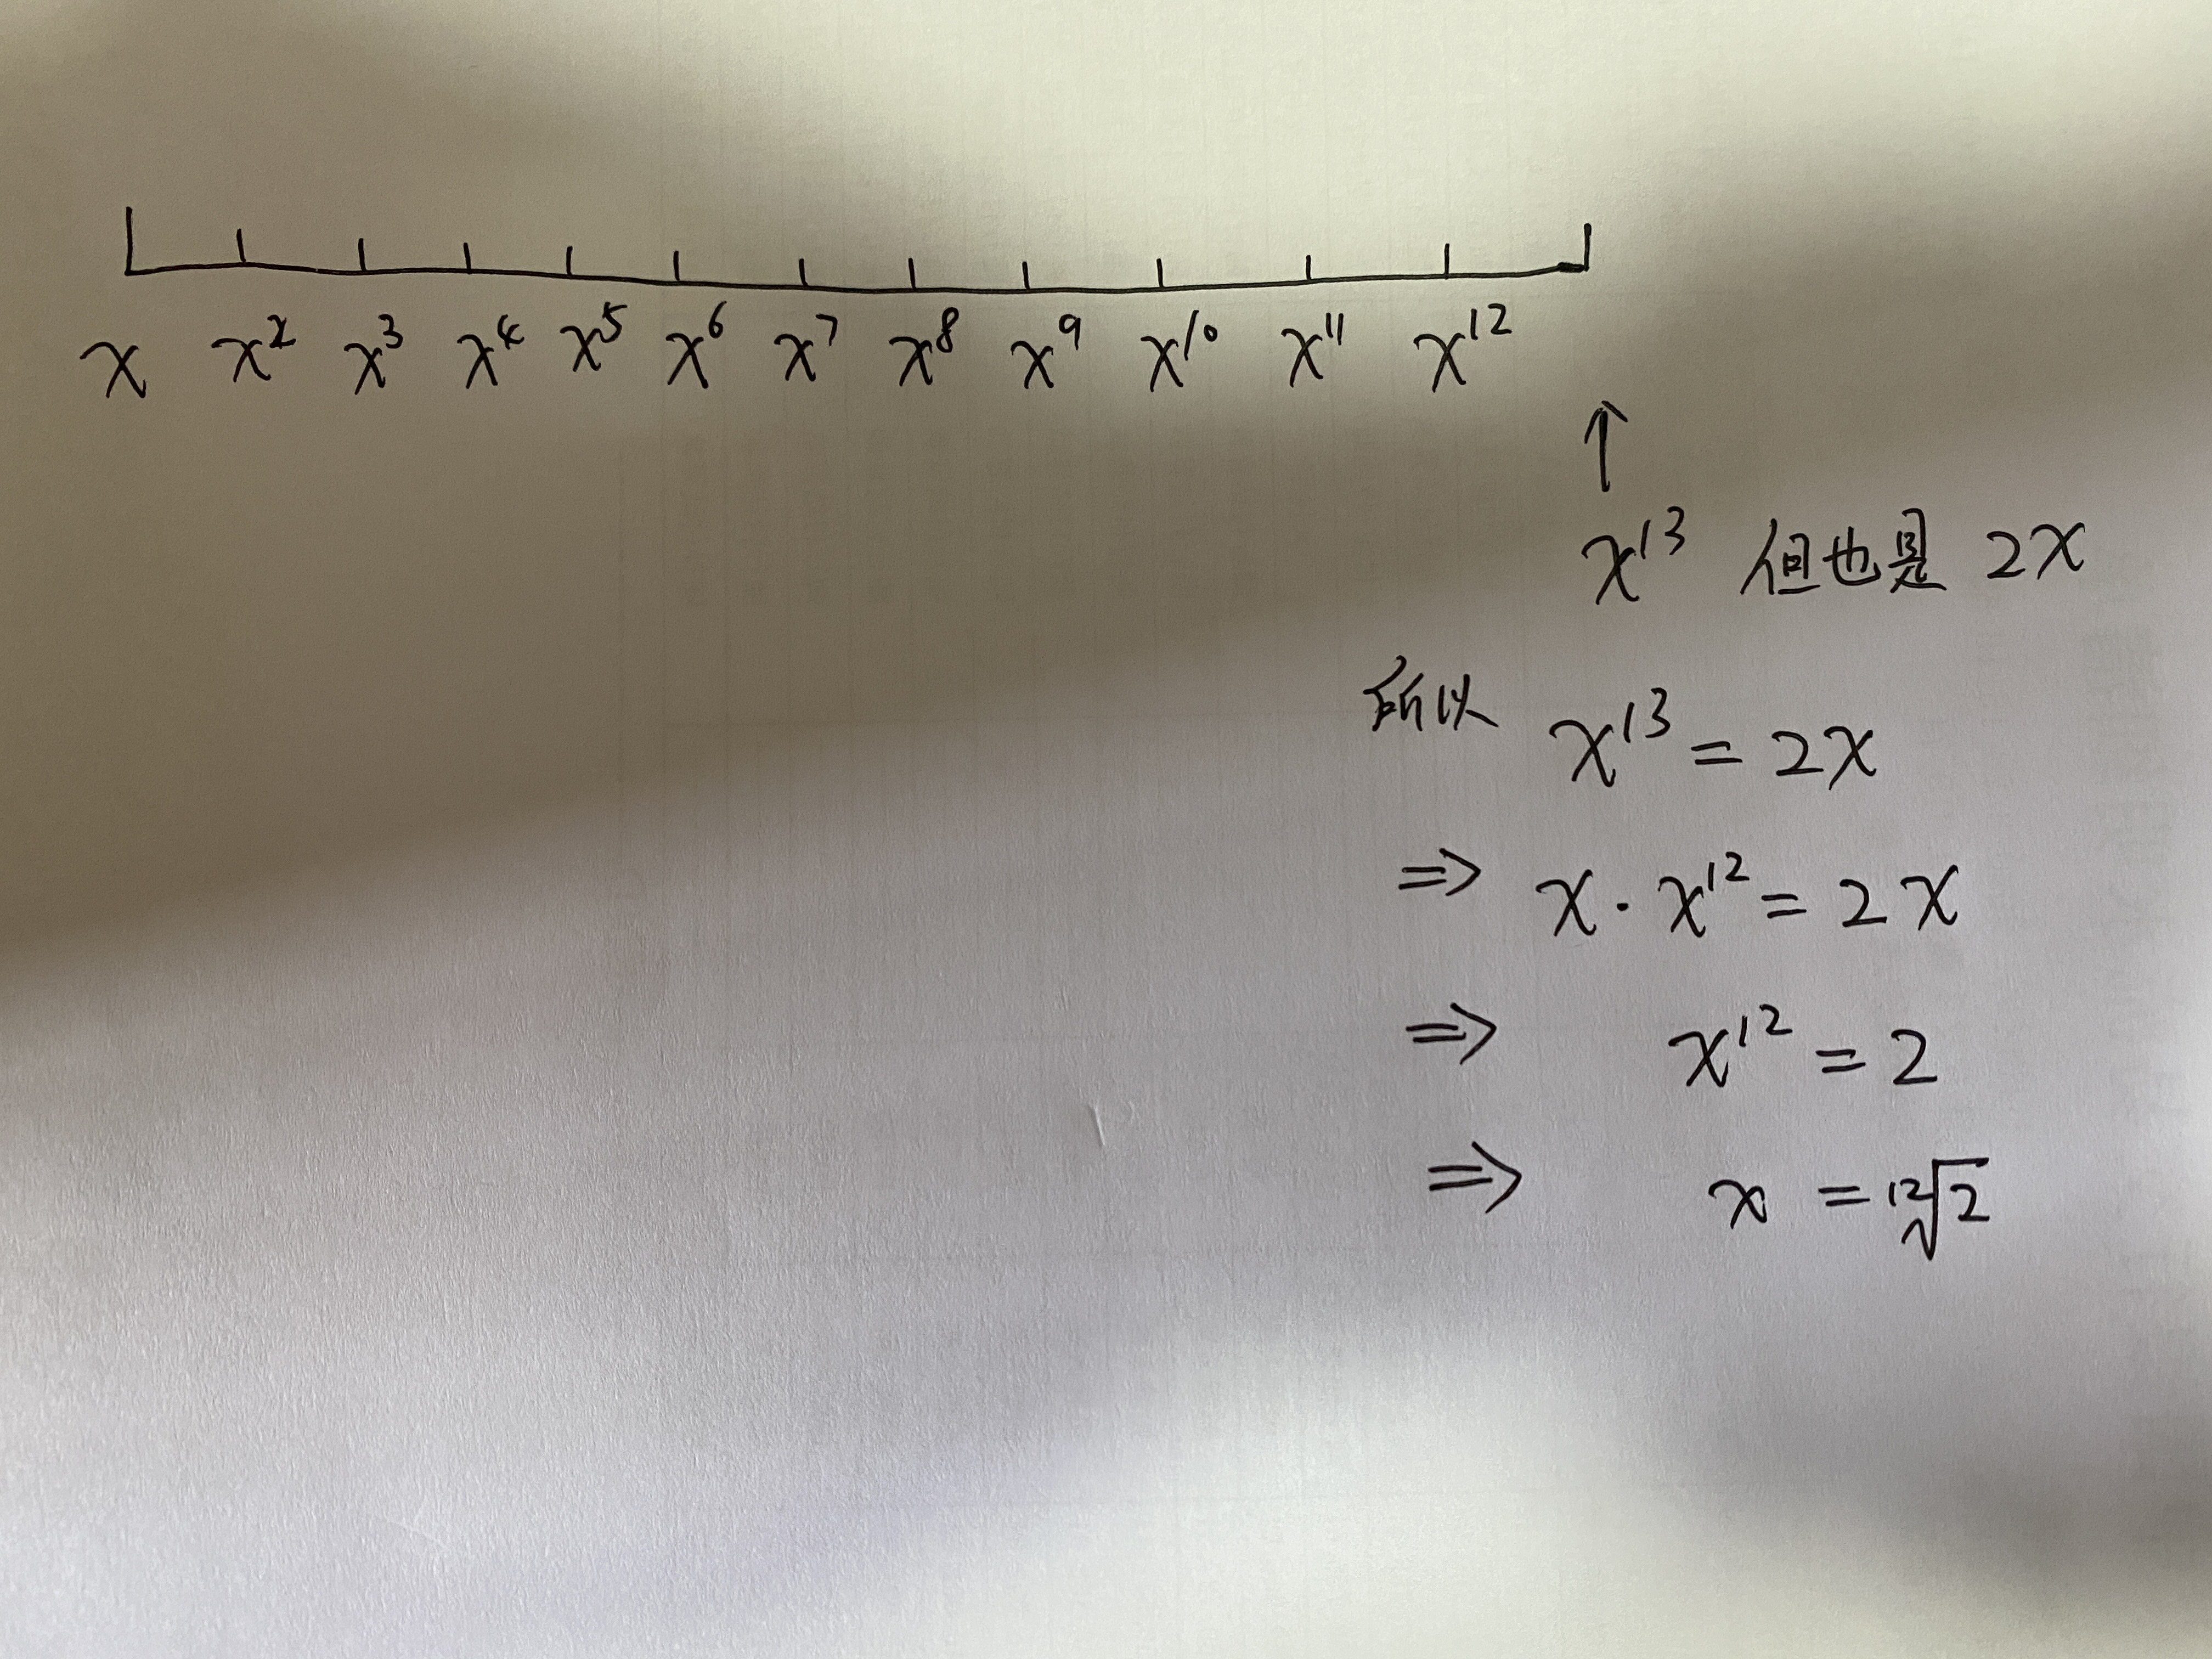 x x² x³ x⁴ x⁵ x⁶ x⁷ x⁸ x⁹ x¹⁰ x¹¹ x¹²
↑
x¹³ 但也是 2x
所以 x¹³ = 2x
⇒ x · x¹² = 2x
⇒ x¹² = 2
⇒ x = ¹²√2